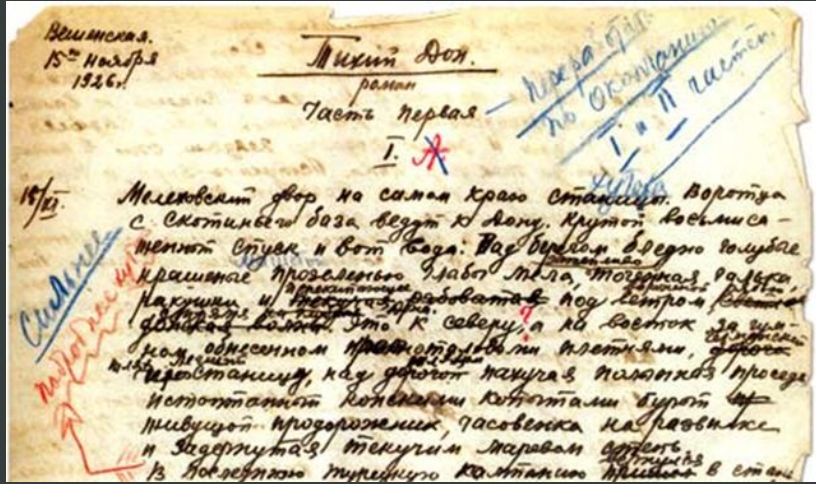 Вешенская.
15го ноября
1926г.
Тихий Дон.
роман
Часть первая
I.
— Перераб
по окончании
I и II частей.
15/XI.
хутора
Мелеховский двор на самом краю станицы. Воротца
с скотиньего база ведут к Дону. Крутой восьмиса-
женный спуск и вот вода: Над берегом бледно голубые
крашеные прозеленью глабы мела, точеная галька,
ракушки и текучая рябоватая под ветром
донская волна. Это к северу, а на восток за гум-
ном обнесенном плетнями,
станицу, над дорогой пахучая полынная проседь
истоптанный конскими копытами бурый
живущой придорожник, часовенка на развилке
и задернутая текучим маревом степь
В последнюю турецкую кампанию в стан
Сильнее
подробнее